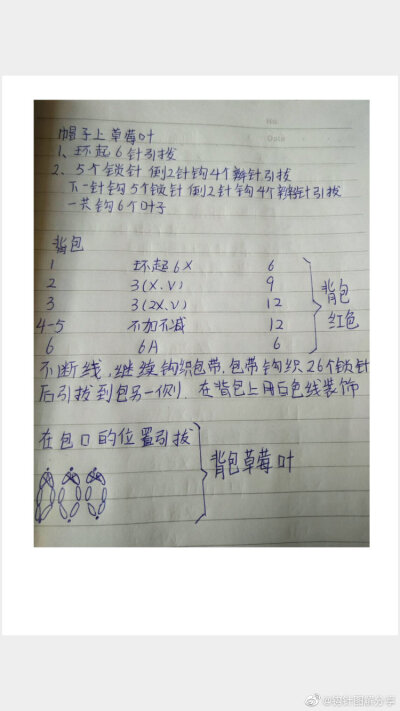 No.
Date
帽子上草莓叶
1、环起6针引拔
2、5个锁针 倒2针钩4个辫针引拔
下一针钩5个锁针 倒2针钩4个辫针引拔
一共钩6个叶子
背包
1 环起6X 6
2 3(X.V) 9
3 3(2X.V) 12
4-5 不加不减 12
6 6A 6
背包
红色
不断线,继续钩织包带.包带钩织26个锁针
后引拔到包另一侧. 在背包上用白色线装饰
在包口的位置引拔
背包草莓叶
@钩针图解分享